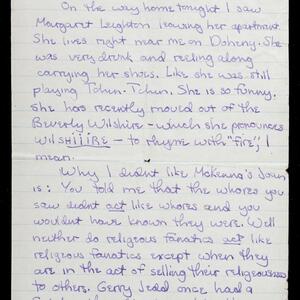 On the way home tonight I saw
Margaret Leighton leaving her apartment.
She lives right near me on Doheny. She
was very drunk and reeling along
carrying her shoes. Like she was still
playing Tchin-Tchin. She is so funny.
She has recently moved out of the
Beverly Wilshire - which she pronounces
WilSHIIIRE - to rhyme with "fire," I
mean.
Why I didnt like McKenna's Joan
is: You told me that the whores you
saw didnt act like whores and you
wouldnt have known they were. Well
neither do religious fanatics act like
religious fanatics except when they
are in the act of selling their religiousness
to others. Gerry Jedd once had a